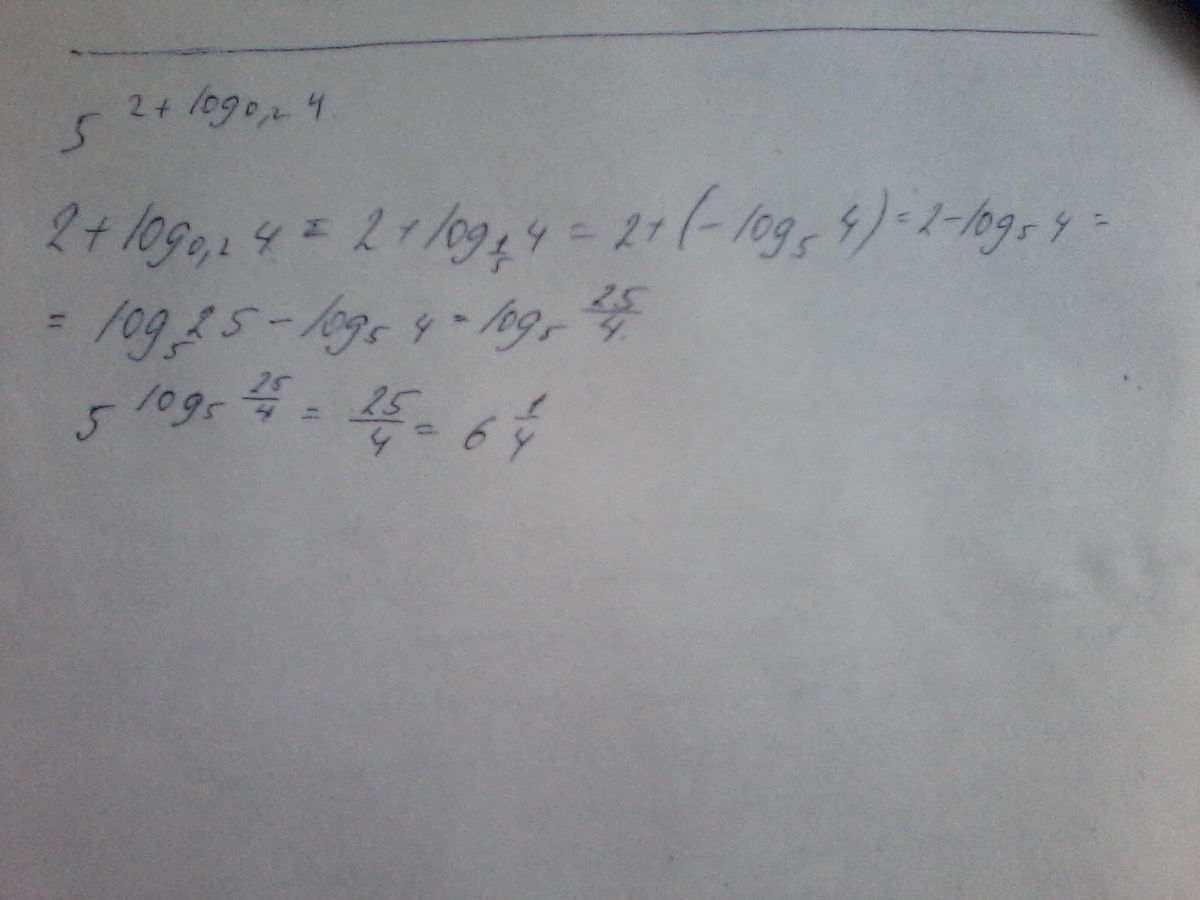 5^{2+log_{0,2} 4}.
2+log_{0,2} 4 = 2+log_{\frac{1}{5}} 4 = 2+(-log_5 4) = 2-log_5 4 =
= log_5 25 - log_5 4 = log_5 \frac{25}{4}.
5^{log_5 \frac{25}{4}} = \frac{25}{4} = 6\frac{1}{4}